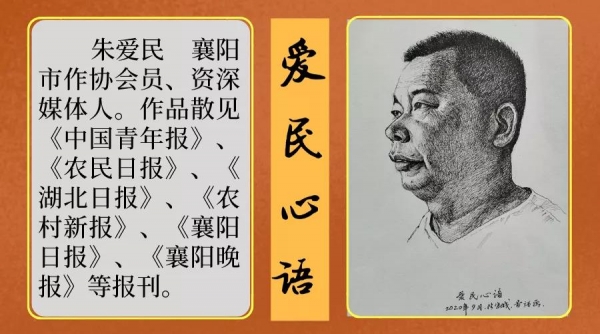 朱爱民 襄阳
市作协会员、资深
媒体人。作品散见
《中国青年报》、
《农民日报》、《
湖北日报》、《农
村新报》、《襄阳
日报》、《襄阳晚
报》等报刊。
爱民心语
爱民心语
2020年9月